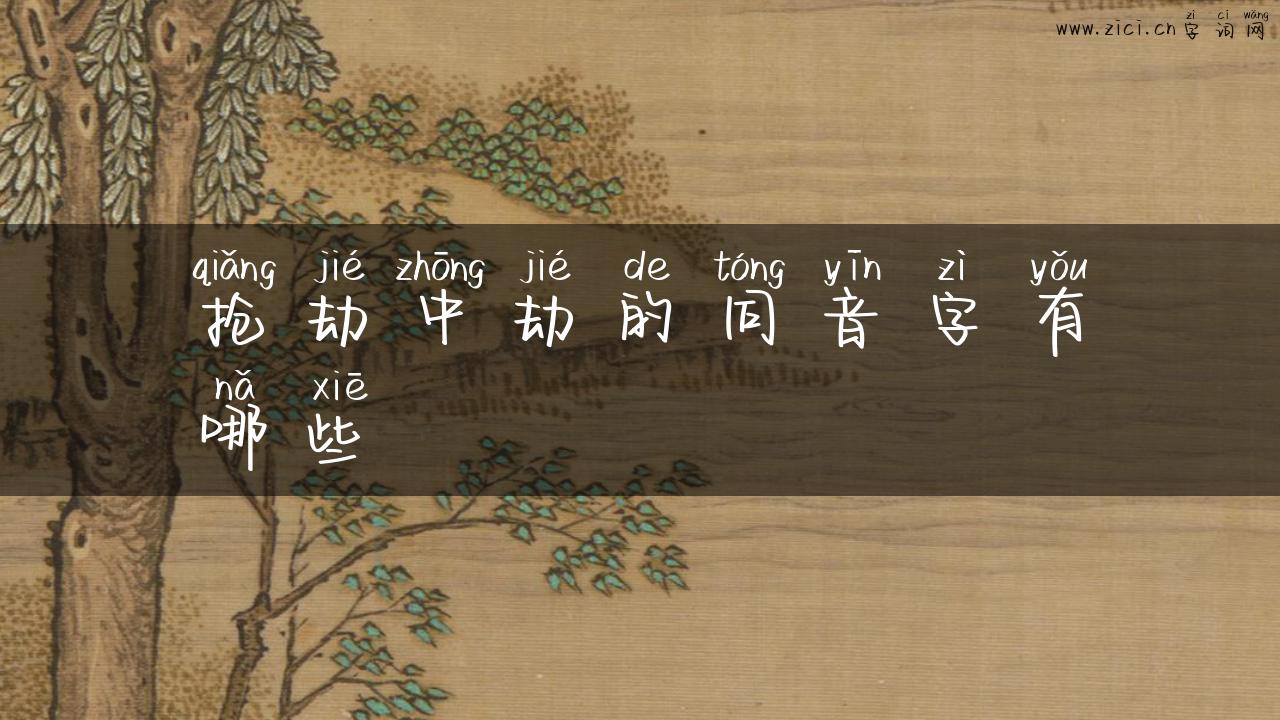 zì cí wǎng
www.zici.cn 字词网
qiǎng jié zhōng jié de tóng yīn zì yǒu
抢劫中劫的同音字有
nǎ xiē
哪些